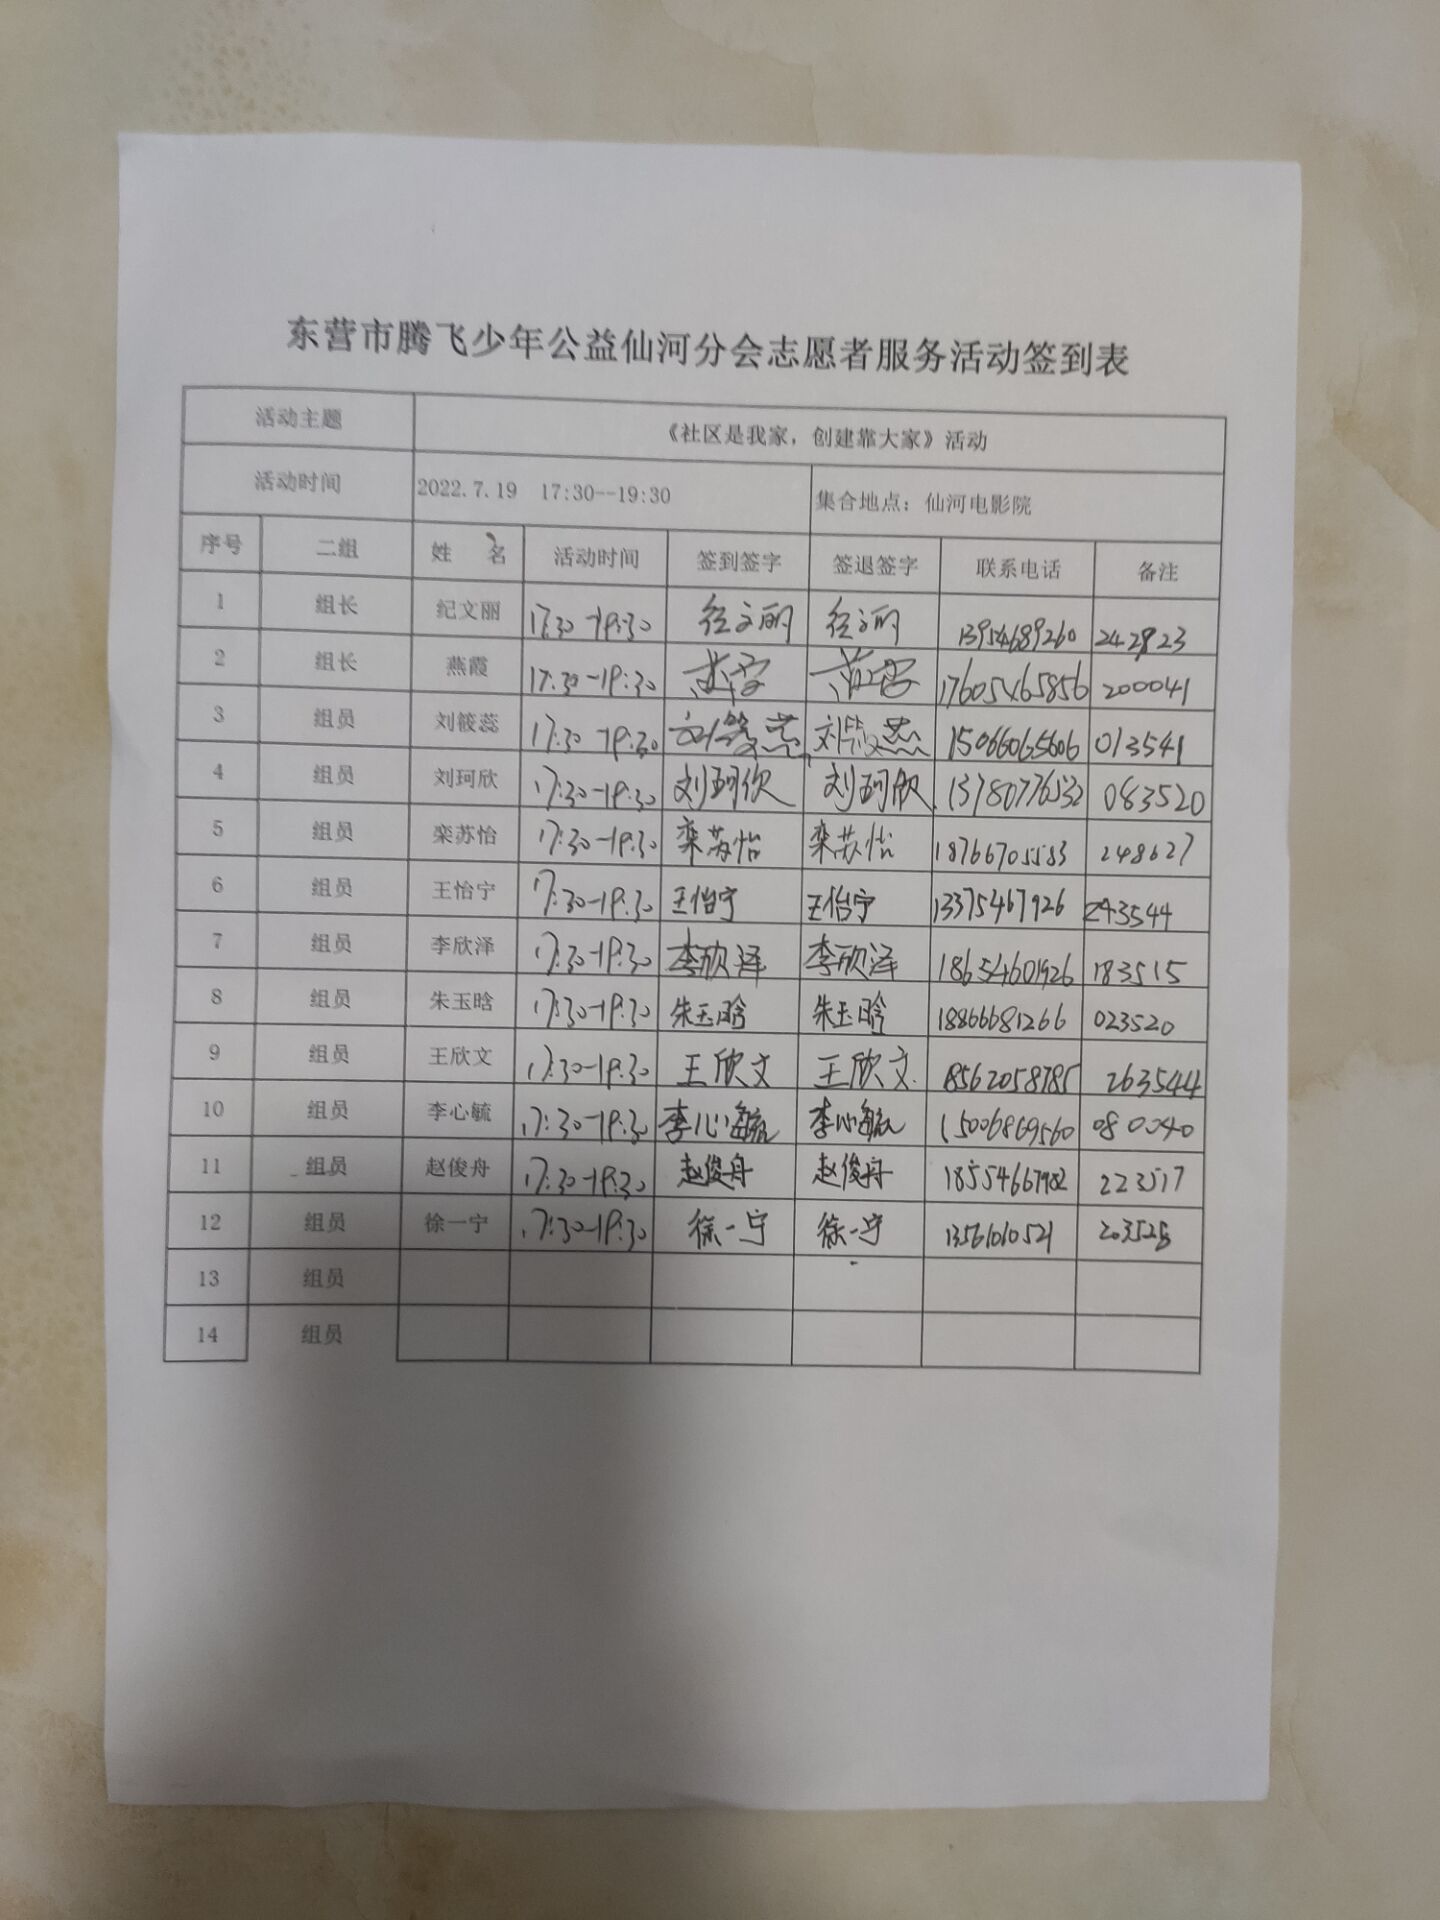 东营市腾飞少年公益仙河分会志愿者服务活动签到表
活动主题 《社区是我家，创建靠大家》活动
活动时间 2022.7.19 17:30--19:30 集合地点：仙河电影院
序号 二组 姓 名 活动时间 签到签字 签退签字 联系电话 备注
1 组长 纪文丽 17:30-19:30 纪文丽 纪文丽 13954689260 242823
2 组长 燕霞 17:30-19:30 燕霞 燕霞 17605465856 200041
3 组员 刘筱蕊 17:30-19:30 刘筱蕊 刘筱蕊 15066065606 013541
4 组员 刘珂欣 17:30-19:30 刘珂欣 刘珂欣 13780776532 083520
5 组员 栾苏怡 17:30-19:30 栾苏怡 栾苏怡 18766705583 248627
6 组员 王怡宁 17:30-19:30 王怡宁 王怡宁 13375467926 243544
7 组员 李欣泽 17:30-19:30 李欣泽 李欣泽 18654601926 183515
8 组员 朱玉晗 17:30-19:30 朱玉晗 朱玉晗 18866681266 023520
9 组员 王欣文 17:30-19:30 王欣文 王欣文 18562058785 263544
10 组员 李心毓 17:30-19:30 李心毓 李心毓 15006869560 080040
11 组员 赵俊舟 17:30-19:30 赵俊舟 赵俊舟 18554667982 223517
12 组员 徐一宁 17:30-19:30 徐一宁 徐一宁 13561010521 203528
13 组员
14 组员